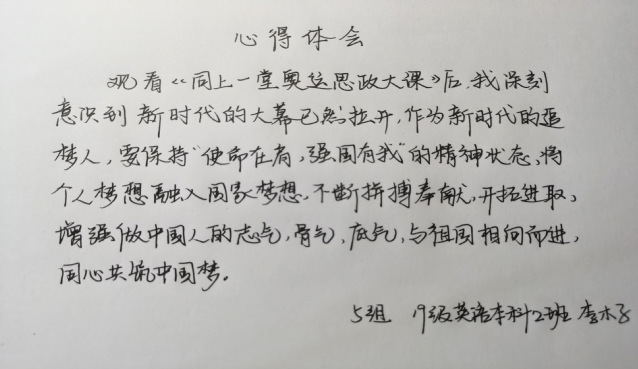 心得体会
观看《同上一堂奥运思政大课》后,我深刻
意识到新时代的大幕已然拉开,作为新时代的追
梦人,要保持“使命在肩,强国有我”的精神状态,将
个人梦想融入国家梦想,不断拼搏奉献,开拓进取,
增强做中国人的志气,骨气,底气,与祖国相向而进,
同心共筑中国梦。
5组 19级英语本科2班 李木子